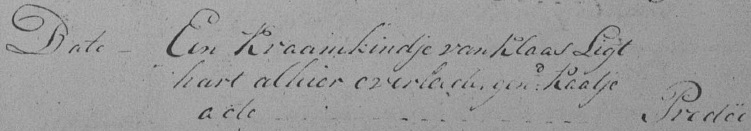 Dato - Een Kraamkindje van Klaas Ligt
hart alhier overlede, gen.d Kaatje
a do - - - - - - Prodeo